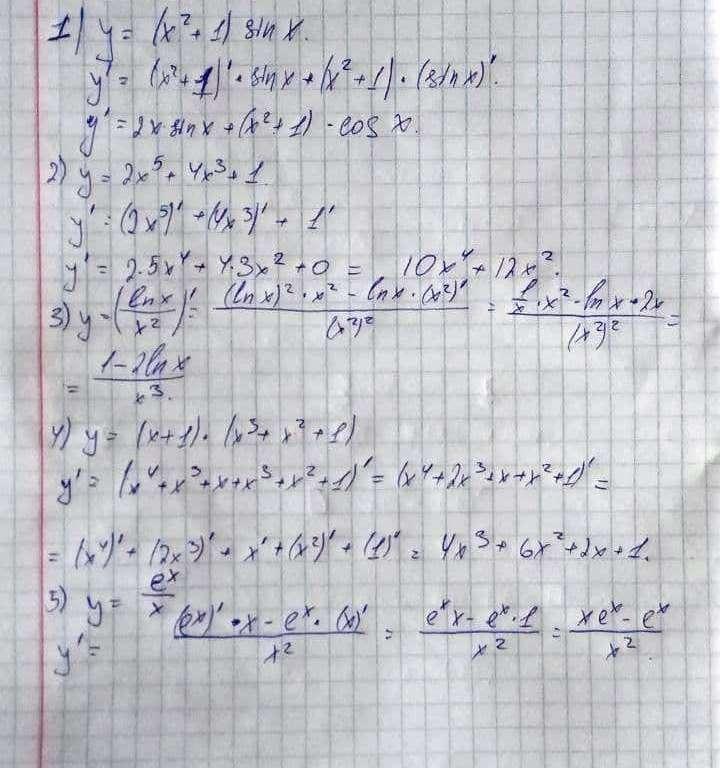 1) y = (x²+1) sin x.
y' = (x²+1)' · sin x + (x²+1) · (sin x)'.
y' = 2x · sin x + (x²+1) · cos x.
2) y = 2x⁵ + 4x³ + 1.
y' = (2x⁵)' + (4x³)' + 1'
y' = 2·5x⁴ + 4·3x² + 0 = 10x⁴ + 12x².
3) y = (ln x / x²)' = ((ln x)² · x² - ln x · (x²)') / (x²)² = (1/x · x² - ln x · 2x) / (x²)² =
= (1 - 2 ln x) / x³.
4) y = (x+1) · (x³ + x² + 1)
y' = (x⁴ + x³ + x + x³ + x² + 1)' = (x⁴ + 2x³ + x + x² + 1)' =
= (x⁴)' + (2x³)' + x' + (x²)' + (1)' = 4x³ + 6x² + 2x + 1.
5) y = eˣ / x
y' = ((eˣ)' · x - eˣ · (x)') / x² = (eˣx - eˣ · 1) / x² = (xeˣ - eˣ) / x².